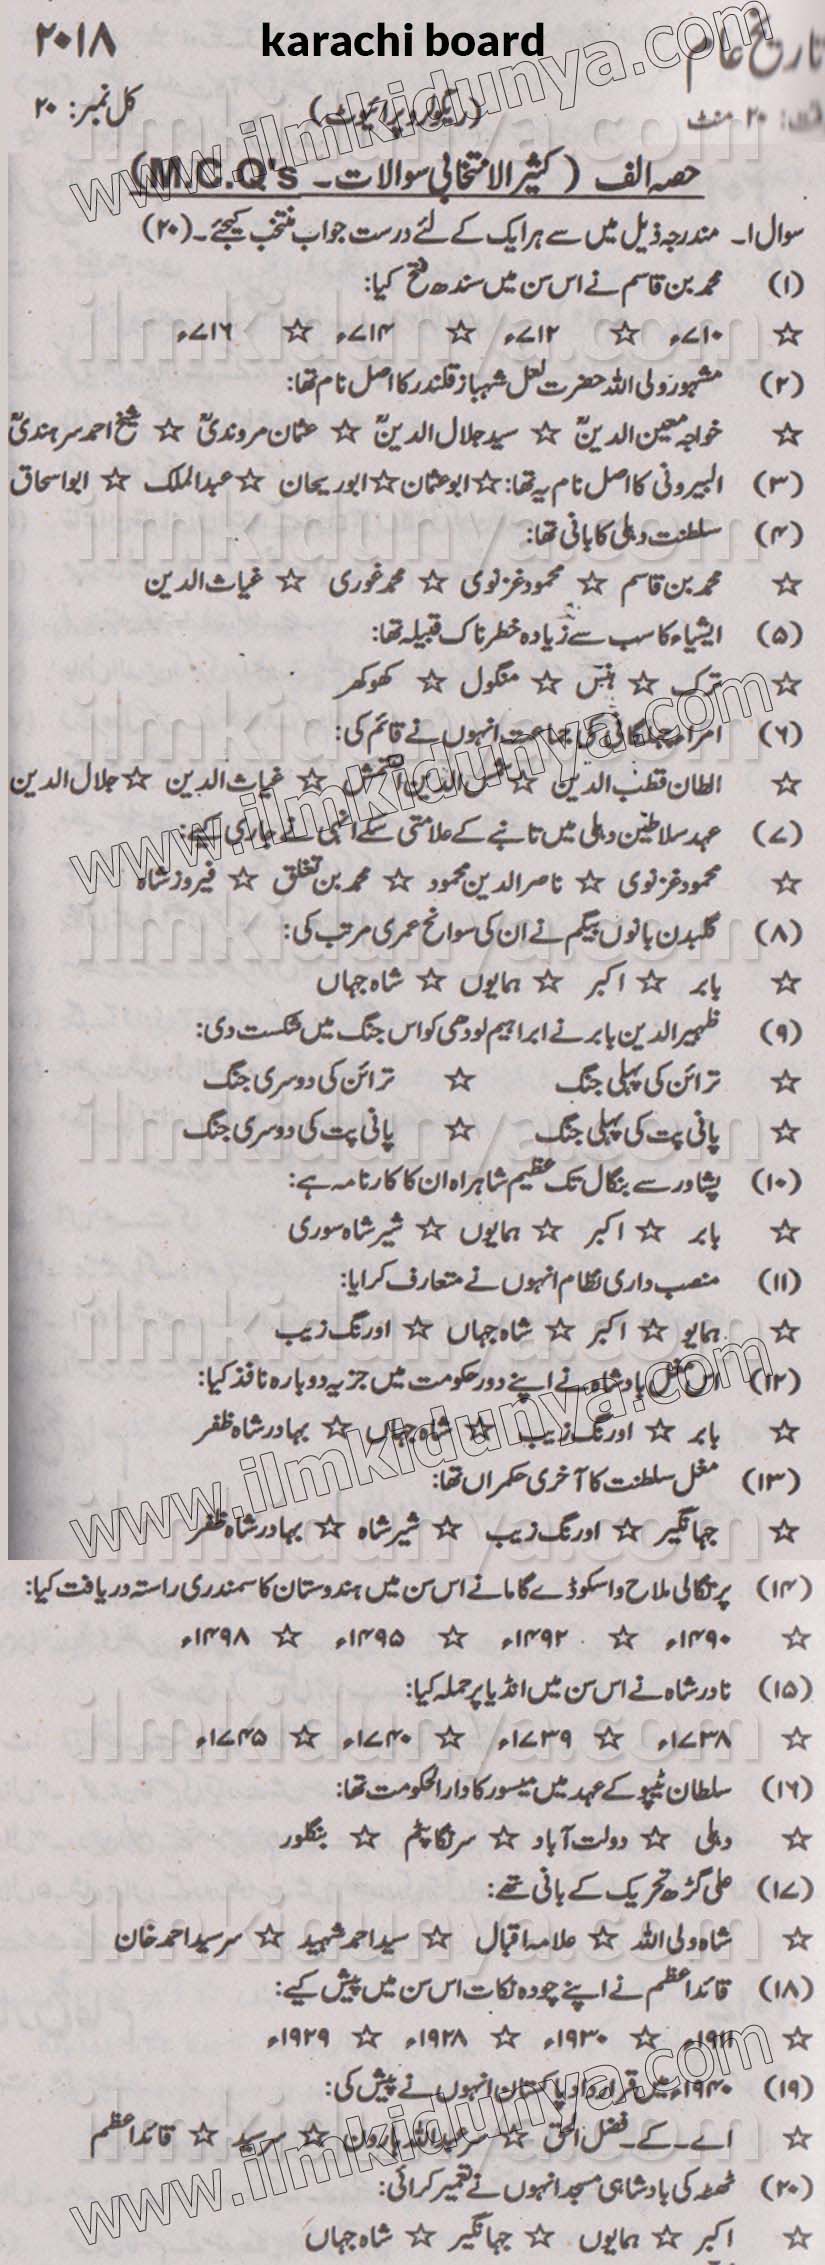 ۲۰۱۸ karachi board تاریخ عام
کل نمبر: ۲۰ (ریگولر و پرائیوٹ) ۲۰ منٹ
حصہ الف (کثیر الانتخابی سوالات ۔ M.C.Q's)
سوال ۱۔ مندرجہ ذیل میں سے ہر ایک کے لئے درست جواب منتخب کیجئے۔ (۲۰)
(۱) محمد بن قاسم نے اس سن میں سندھ فتح کیا:
☆ ۷۱۰ء ☆ ۷۱۲ء ☆ ۷۱۴ء ☆ ۷۱۶ء
(۲) مشہور ولی اللہ حضرت لعل شہباز قلندر کا اصل نام تھا:
☆ خواجہ معین الدینؒ ☆ سید جلال الدینؒ ☆ عثمان مروندیؒ ☆ شیخ احمد سرہندیؒ
(۳) البیرونی کا اصل نام یہ تھا: ☆ ابو عثمان ☆ ابوریحان ☆ عبدالملک ☆ ابو اسحاق
(۴) سلطنت دہلی کا بانی تھا:
☆ محمد بن قاسم ☆ محمود غزنوی ☆ محمد غوری ☆ غیاث الدین
(۵) ایشیاء کا سب سے زیادہ خطرناک قبیلہ تھا:
☆ ترک ☆ ہنس ☆ منگول ☆ کھوکھر
(۶) امراء چہلگانی کی جماعت انہوں نے قائم کی:
☆ الطان قطب الدین ☆ شمس الدین التمش ☆ غیاث الدین ☆ جلال الدین
(۷) عہد سلاطین دہلی میں تانبے کے علامتی سکے انہی نے جاری کیے:
☆ محمود غزنوی ☆ ناصر الدین محمود ☆ محمد بن تغلق ☆ فیروز شاہ
(۸) گلبدن بانوں بیگم نے ان کی سوانح عمری مرتب کی:
☆ بابر ☆ اکبر ☆ ہمایوں ☆ شاہ جہاں
(۹) ظہیر الدین بابر نے ابراہیم لودھی کو اس جنگ میں شکست دی:
☆ ترائن کی پہلی جنگ ☆ ترائن کی دوسری جنگ
☆ پانی پت کی پہلی جنگ ☆ پانی پت کی دوسری جنگ
(۱۰) پشاور سے بنگال تک عظیم شاہراہ ان کا کارنامہ ہے:
☆ بابر ☆ اکبر ☆ ہمایوں ☆ شیر شاہ سوری
(۱۱) منصب داری نظام انہوں نے متعارف کرایا:
☆ ہمایو ☆ اکبر ☆ شاہ جہاں ☆ اورنگ زیب
(۱۲) اس مغل بادشاہ نے اپنے دور حکومت میں جزیہ دوبارہ نافذ کیا:
☆ بابر ☆ اورنگ زیب ☆ شاہ جہاں ☆ بہادر شاہ ظفر
(۱۳) مغل سلطنت کا آخری حکمراں تھا:
☆ جہانگیر ☆ اورنگ زیب ☆ شیر شاہ ☆ بہادر شاہ ظفر
(۱۴) پرتگالی ملاح واسکوڈے گاما نے اس سن میں ہندوستان کا سمندری راستہ دریافت کیا:
☆ ۱۴۹۰ء ☆ ۱۴۹۲ء ☆ ۱۴۹۵ء ☆ ۱۴۹۸ء
(۱۵) نادر شاہ نے اس سن میں انڈیا پر حملہ کیا:
☆ ۱۷۳۸ء ☆ ۱۷۳۹ء ☆ ۱۷۴۰ء ☆ ۱۷۴۵ء
(۱۶) سلطان ٹیپو کے عہد میں میسور کا دارالحکومت تھا:
☆ دہلی ☆ دولت آباد ☆ سرنگا پٹم ☆ بنگلور
(۱۷) علی گڑھ تحریک کے بانی تھے:
☆ شاہ ولی اللہ ☆ علامہ اقبال ☆ سید احمد شہید ☆ سرسید احمد خان
(۱۸) قائد اعظم نے اپنے چودہ نکات اس سن میں پیش کیے:
☆ ☆ ۱۹۳۰ء ☆ ۱۹۲۸ء ☆ ۱۹۲۹ء
(۱۹) ۱۹۴۰ء میں قرارداد پاکستان انہوں نے پیش کی:
☆ اے۔ کے۔ فضل الحق ☆ سر عبداللہ ہارون ☆ سرسید ☆ قائد اعظم
(۲۰) ٹھٹہ کی بادشاہی مسجد انہوں نے تعمیر کرائی:
☆ اکبر ☆ ہمایوں ☆ جہانگیر ☆ شاہ جہاں
www.ilmkidunya.com
ilmkidunya.com